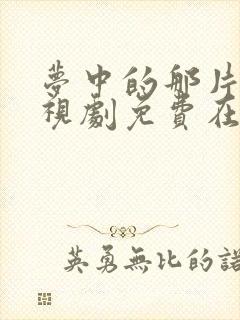 夢中的那片
視劇免費在
英勇無比的諾